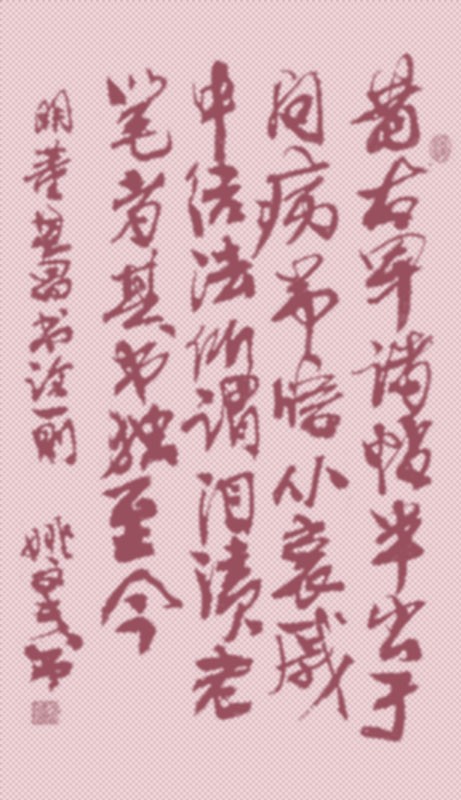 昔右军诸帖半出于
问病吊唁从哀戚
中结法所谓泪渍老
笔者其书独至今
明董其昌书诠一则
姚